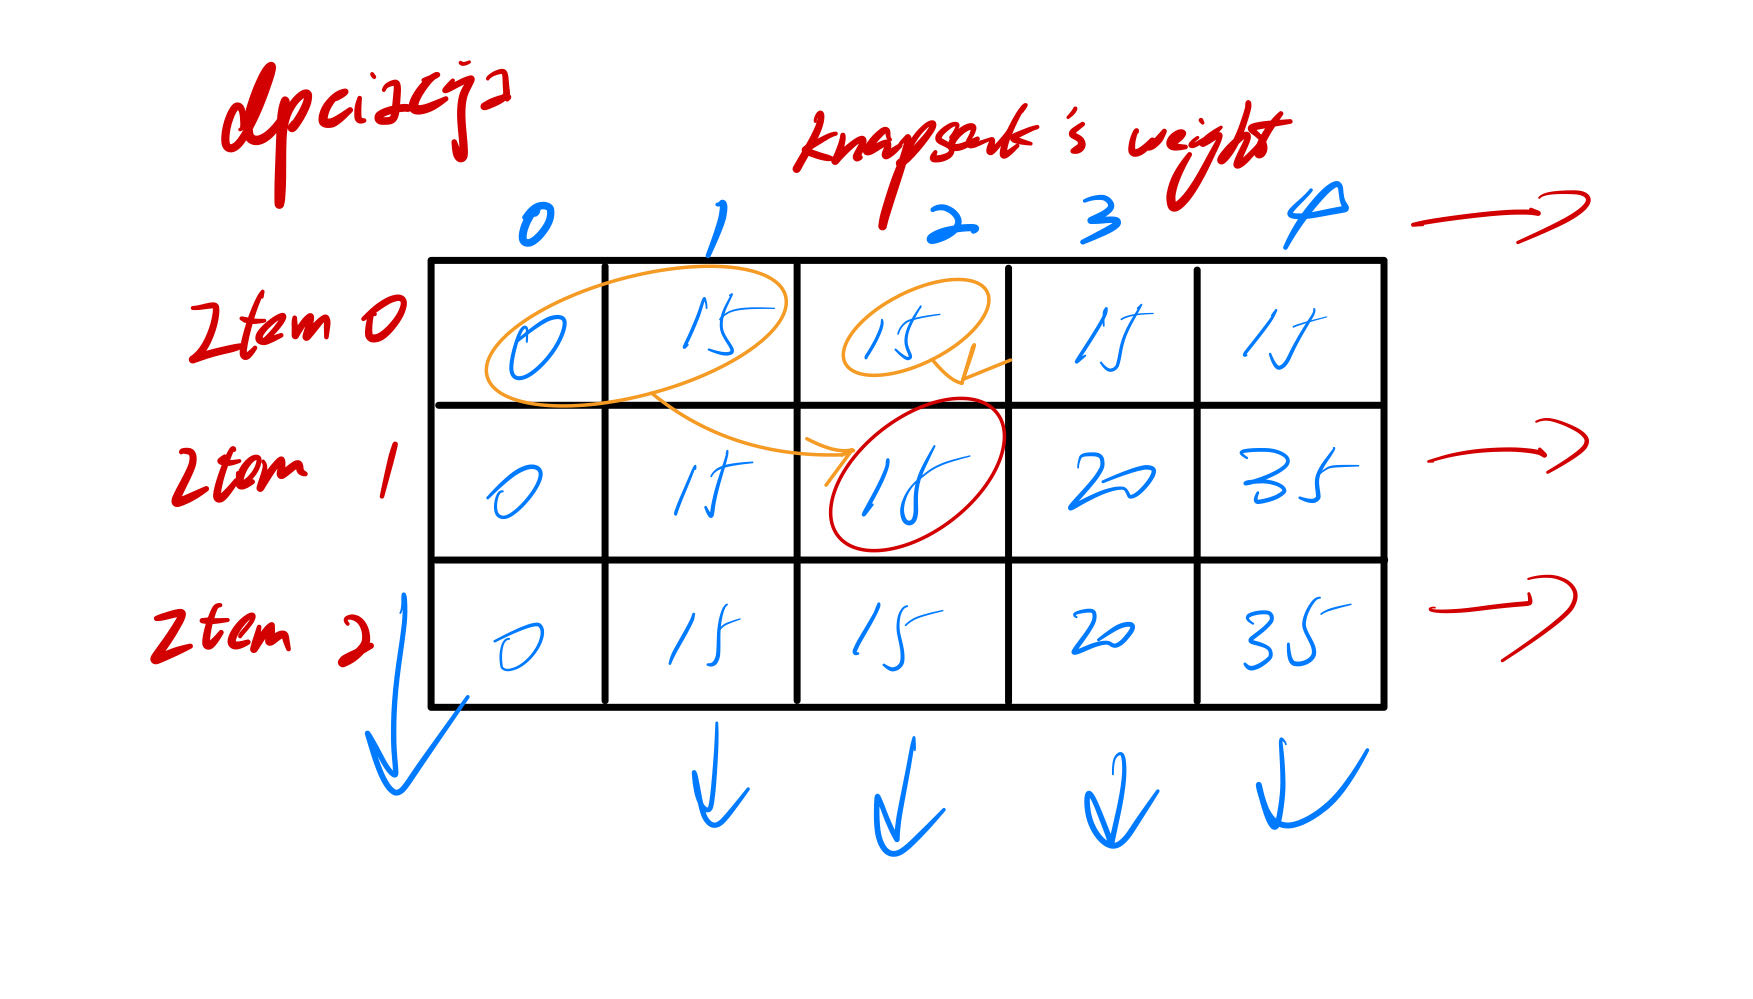 dp[i][j]
knapsack's weight
0 1 2 3 4
Item 0 0 15 15 15 15
Item 1 0 15 15 20 35
Item 2 0 15 15 20 35